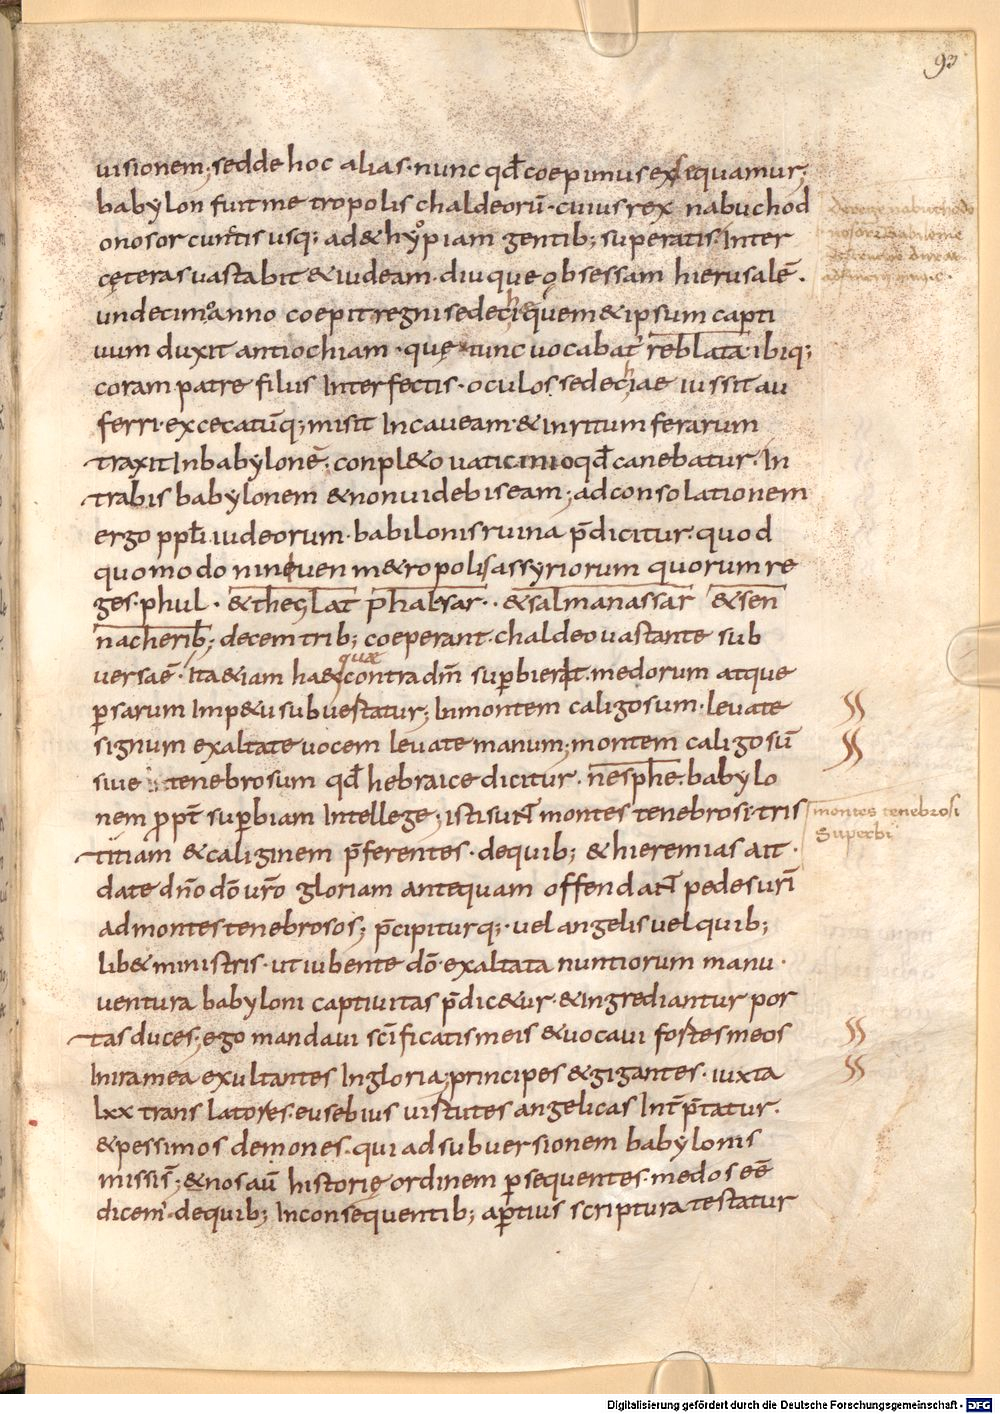 93
uisionem; sed de hoc alias· nunc qđ coepimus exsequamur;
babylon fuit metropolis chaldeorū· cuius rex nabuchod
onosor cunctis usq; ad &hyopiam gentib; superatis· Inter
cęteras uastabit & iudeam· diuque obsessam hierusalē·
undecimo anno coepit regni sedechię quem & ipsum capti
uum duxit antiochiam· quę tunc uocabat̄ reblata· ibiq;
coram patre filiis Interfectis· oculos sedechiae iussit au
ferri· excecatūq; misit In caueam· & in ritum ferarum
traxit In babylonē· conpl&o uaticinio qđ canebatur· In
trabis babylonem & non uidebis eam; ad consolationem
ergo ppłi iudeorum· babilonis ruina p̄dicitur· quod
quomodo nineuen m&ropolis assyriorum quorum re
ges· phul· & theglat phalsar·· & salmanassar & sen
nacherib; decem trib; coeperant· chaldeo uastante sub
uersaē· ita &iam haec quae contra dm̄ superbierat· medorum atque
ꝑsarum Imp&u subuertatur; In montem caligosum· leuate
signum exaltate uocem leuate manum; montem caligosū
siue tenebrosum qđ hebraice dicitur· nesphe· babylo
nem ꝓpt̄ suꝑbiam Intellege; isti sunt montes tenebrosi· tris
titiam & caliginem p̄ferentes· de quib; & hieremias ait·
date dn̄o dō ur̄o gloriam antequam offendant pedes ur̄i
ad montes tenebrosos; p̄cipiturq;· uel angelis uel quib;
lib& ministris· ut iubente dō· exaltata nuntiorum manu·
uentura babyloni captiuitas p̄dic&ur· & Ingrediantur por
tas duces; ego mandaui sc̄ificatis meis & uocaui fortes meos
In ira mea exultantes In gloria; principes & gigantes· iuxta
lxx translatores· eusebius uirtutes angelicas Int̄p̄tatur·
& pessimos demones· qui ad subuersionem babylonis
missis̄; & nos aū historię ordinem ꝑsequentes· medos eē
dicem̄· de quib; In consequentib; aꝑtius scriptura testatur
montes tenebrosi
Superbi
Digitalisierung gefördert durch die Deutsche Forschungsgemeinschaft - DFG